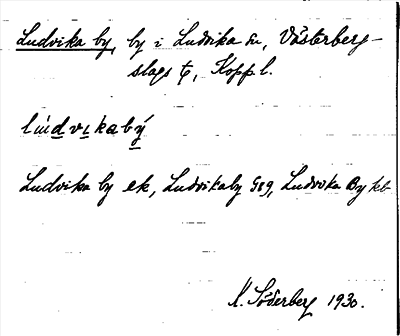 Ludvika by, by i Ludvika sn, Västerberg-
slags t, Kopp l.
lúdvikabý
Ludvika by ek, Ludvikaby gsg, Ludvika By kb
K. Söderberg 1930.